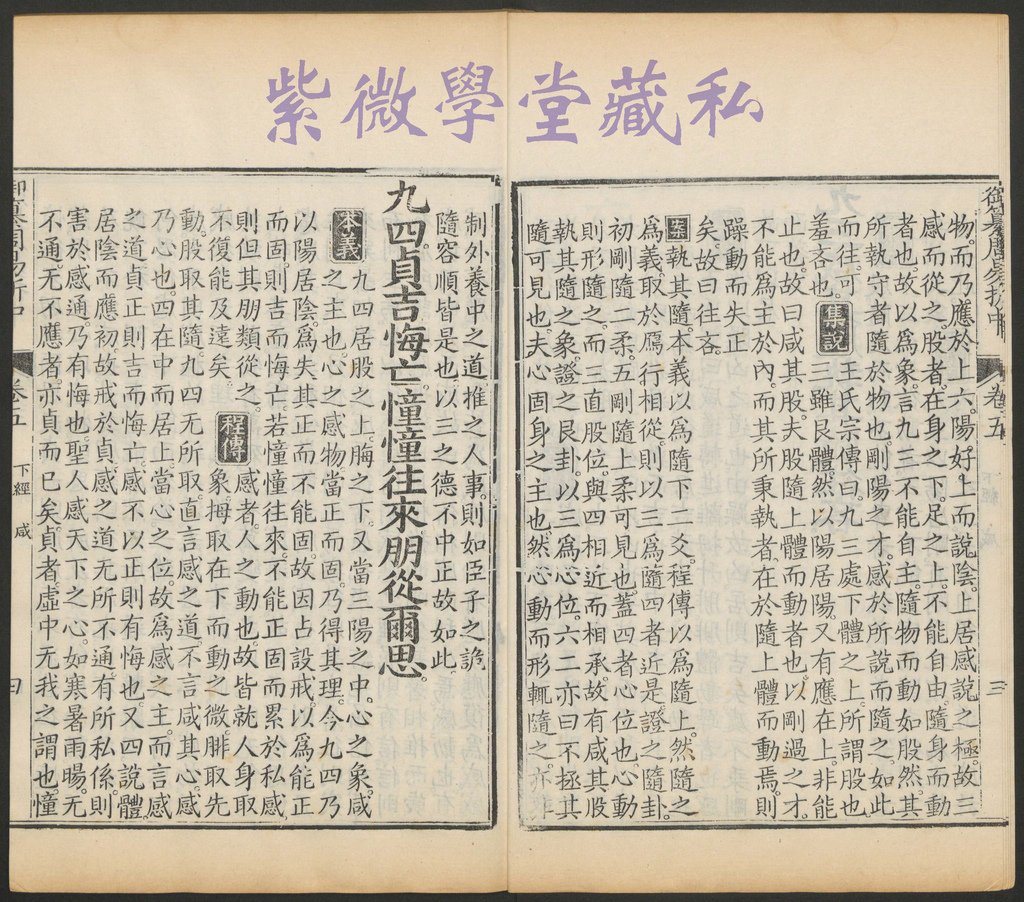 紫微學堂藏私
御纂周易折中 卷五 三
物。而乃應於上六。陽好上而說陰。上居感說之極。故三
感而從之。股者。在身之下。足之上。不能自由。隨身而動
者也。故以爲象。言九三不能自主。隨物而動。如股然。其
所執守者。隨於物也。剛陽之才。感於所說而隨之。如此
而往。可
羞吝也。
集說
王氏宗傳曰。九三處下體之上。所謂股也
三雖艮體。然以陽居陽。又有應在上。非能
止也。故曰咸其股。夫股隨上體而動者也。以剛過之才。
不能爲主於內。而其所秉執者。在於隨上體而動焉。則
躁動而失正
矣。故曰往吝。
案 執其隨。本義以爲隨下二爻。程傳以爲隨上。然隨之
爲義。取於鴈行相從。則以三爲隨四者近是。證之隨卦。
初剛隨二柔。五剛隨上柔可見也。蓋四者心位也。心動
則形隨之。而三直股位。與四相近而相承。故有咸其股
執其隨之象。證之艮卦。以三爲心位。六二亦曰不拯其
隨可見也。夫心固身之主也。然心動而形輒隨之。亦非
制外養中之道。推之人事。則如臣子之詭
隨容順皆是也。以三之德不中正故如此。
九四。貞吉悔亡。憧憧往來。朋從爾思。
本義
九四居股之上。脢之下。又當三陽之中。心之象。咸
之主也。心之感物。當正而固。乃得其理。今九四乃
以陽居陰。爲失其正而不能固。故因占設戒。以爲能正
而固。則吉而悔亡。若憧憧往來。不能正固而累於私感。
則但其朋類從之。
不復能及遠矣。
程傳
感者。人之動也。故皆就人身取
象。拇取在下而動之微。腓取先
動。股取其隨。九四无所取。直言感之道。不言咸其心。感
乃心也。四在中而居上。當心之位。故爲感之主。而言感
之道。貞正則吉而悔亡。感不以正則有悔也。又四說體。
居陰而應初。故戒於貞。感之道无所不通。有所私係。則
害於感通。乃有悔也。聖人感天下之心。如寒暑雨暘。无
不通。无不應者。亦貞而已矣。貞者。虛中无我之謂也。憧
御纂周易折中 卷五 下經 咸